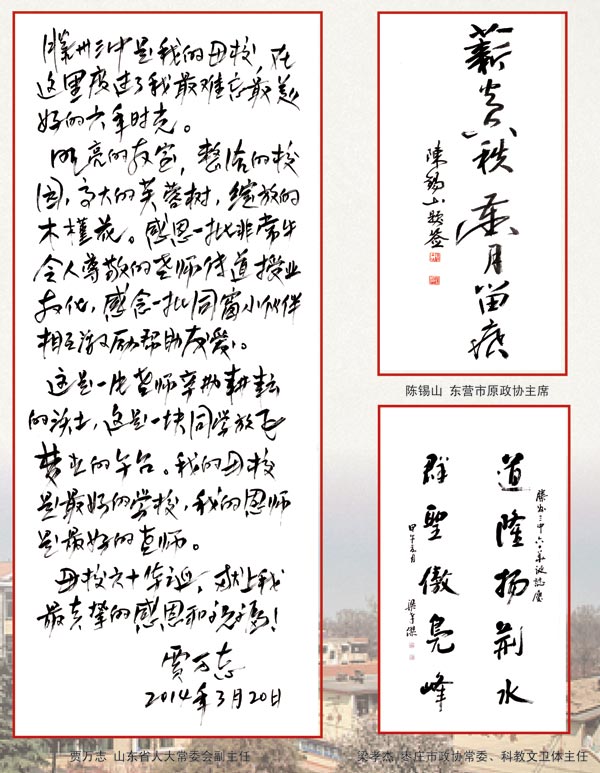 滕州三中是我的母校，在
这里度过了我最难忘、最美
好的六年时光。
明亮的教室，整洁的校
园，高大的芙蓉树，绽放的
木槿花。感恩一批非常
令人尊敬的老师传道授业
教化，感念一批同窗小伙伴
相互激励帮助友爱。
这是一片老师辛勤耕耘
的沃土，这是一块同学放飞
梦想的平台。我的母校
是最好的学校，我的恩师
是最好的良师。
母校六十华诞，献上我
最真挚的感恩和祝福！
贾万志
2014年3月20日
贾万志 山东省人大常委会副主任
薪火
秩
岁月留痕
陈锡山 东营市原政协主席
道隆扬荆水
群聖傲凫峰
甲午
梁孝杰 枣庄市政协常委、科教文卫体主任